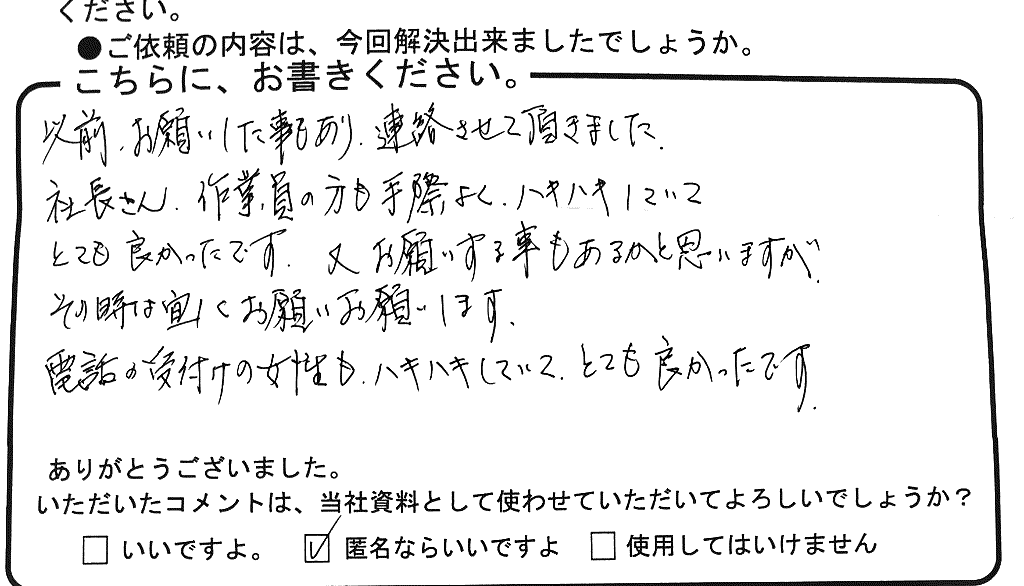 ください。
●ご依頼の内容は、今回解決出来ましたでしょうか。
こちらに、お書きください。
以前、お願いした事もあり、連絡させて頂きました。
社長さん、作業員の方も手際よく、ハキハキしていて
とても良かったです。又お願いする事もあるかと思いますが、
その時は宜しくお願いお願いします。
電話の受付けの女性も、ハキハキしていて、とても良かったです。
ありがとうございました。
いただいたコメントは、当社資料として使わせていただいてよろしいでしょうか？
□ いいですよ。 ☑ 匿名ならいいですよ □ 使用してはいけません